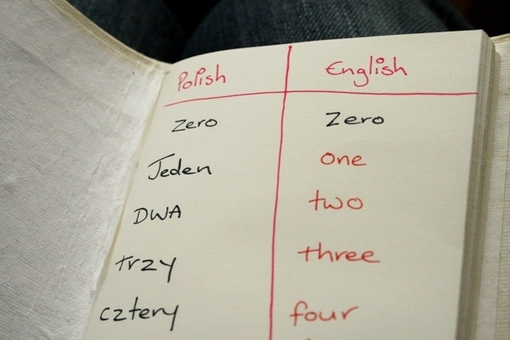 Polish English
Zero Zero
Jeden one
DWA two
trzy three
cztery four